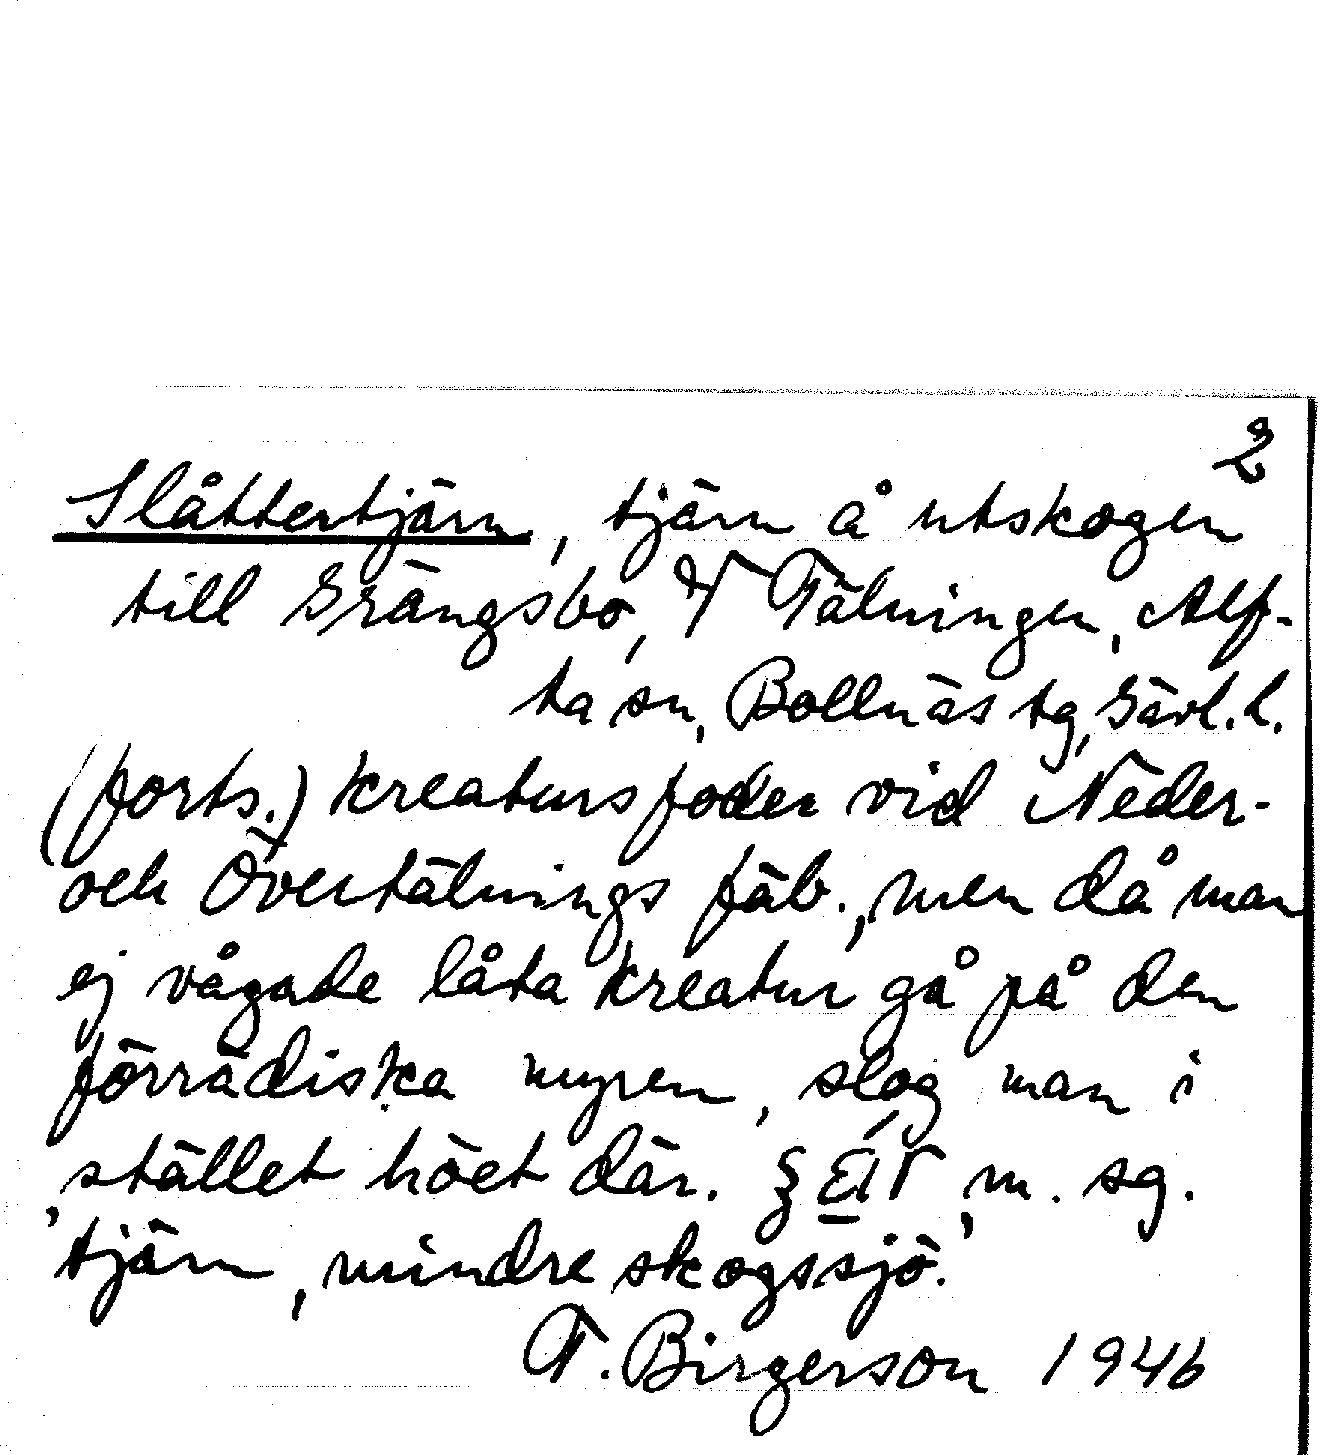 2
Slåttertjärn, tjärn å utskogen
till Grängsbo, V Tälningen, Alf-
ta sn, Bollnäs tg, Gävl. l.
(forts.) kreatursfoder vid Neder-
och Övertälnings fäb., men då man
ej vågade låta kreatur gå på den
förrädiska myren, slog man i
stället höet där. m. sg.
'tjärn, mindre skogssjö.'
T. Birgerson 1946